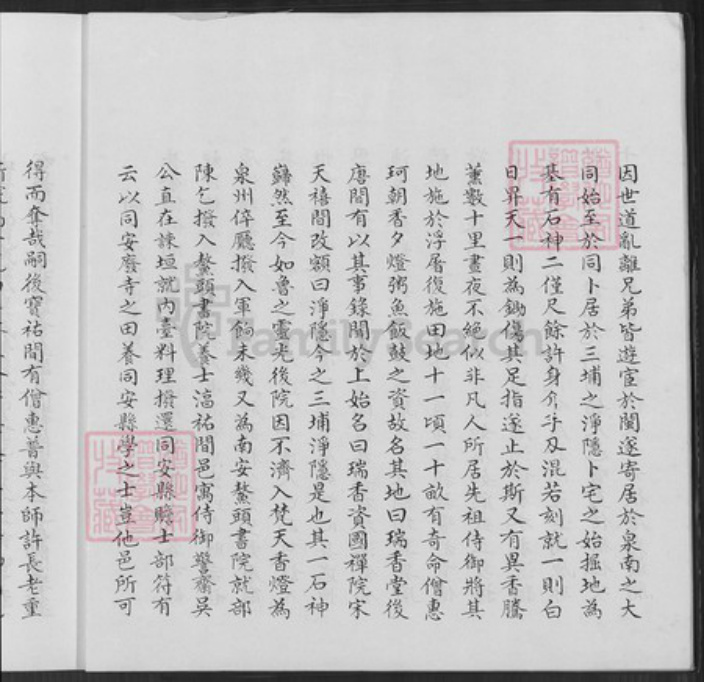 因世道亂離兄弟皆遊宦於閩遂寄居於泉南之大
同始至於同卜居於三埔之淨隱卜宅之始掘地為
基有石神二僅尺餘許身介手及混若刻就一則白
日昇天一則為鋤傷其足指遂止於斯又有異香騰
薰數十里晝夜不絕似非凡人所居先祖侍御將其
地施於浮屠復施田地十一頃一十畝有奇命僧惠
珂朝香夕燈粥魚飯鼓之資故名其地曰瑞香堂後
唐間有以其事錄聞於上始名曰瑞香資國禪院宋
天禧間改額曰淨隱今之三埔淨隱是也其一石神
巋然至今如魯之靈光後院因不濟入梵天香燈為
泉州倅廳撥入軍餉未幾又為南安鰲頭書院就部
陳乞撥入鰲頭書院養士淳祐間邑寓侍御警齋吳
公直在諫垣就內臺料理撥還同安縣贍士部符有
云以同安廢寺之田養同安縣學之士豈他邑所可
得而奪哉嗣後寶祐間有僧惠普與本師許長老重
FamilySearch